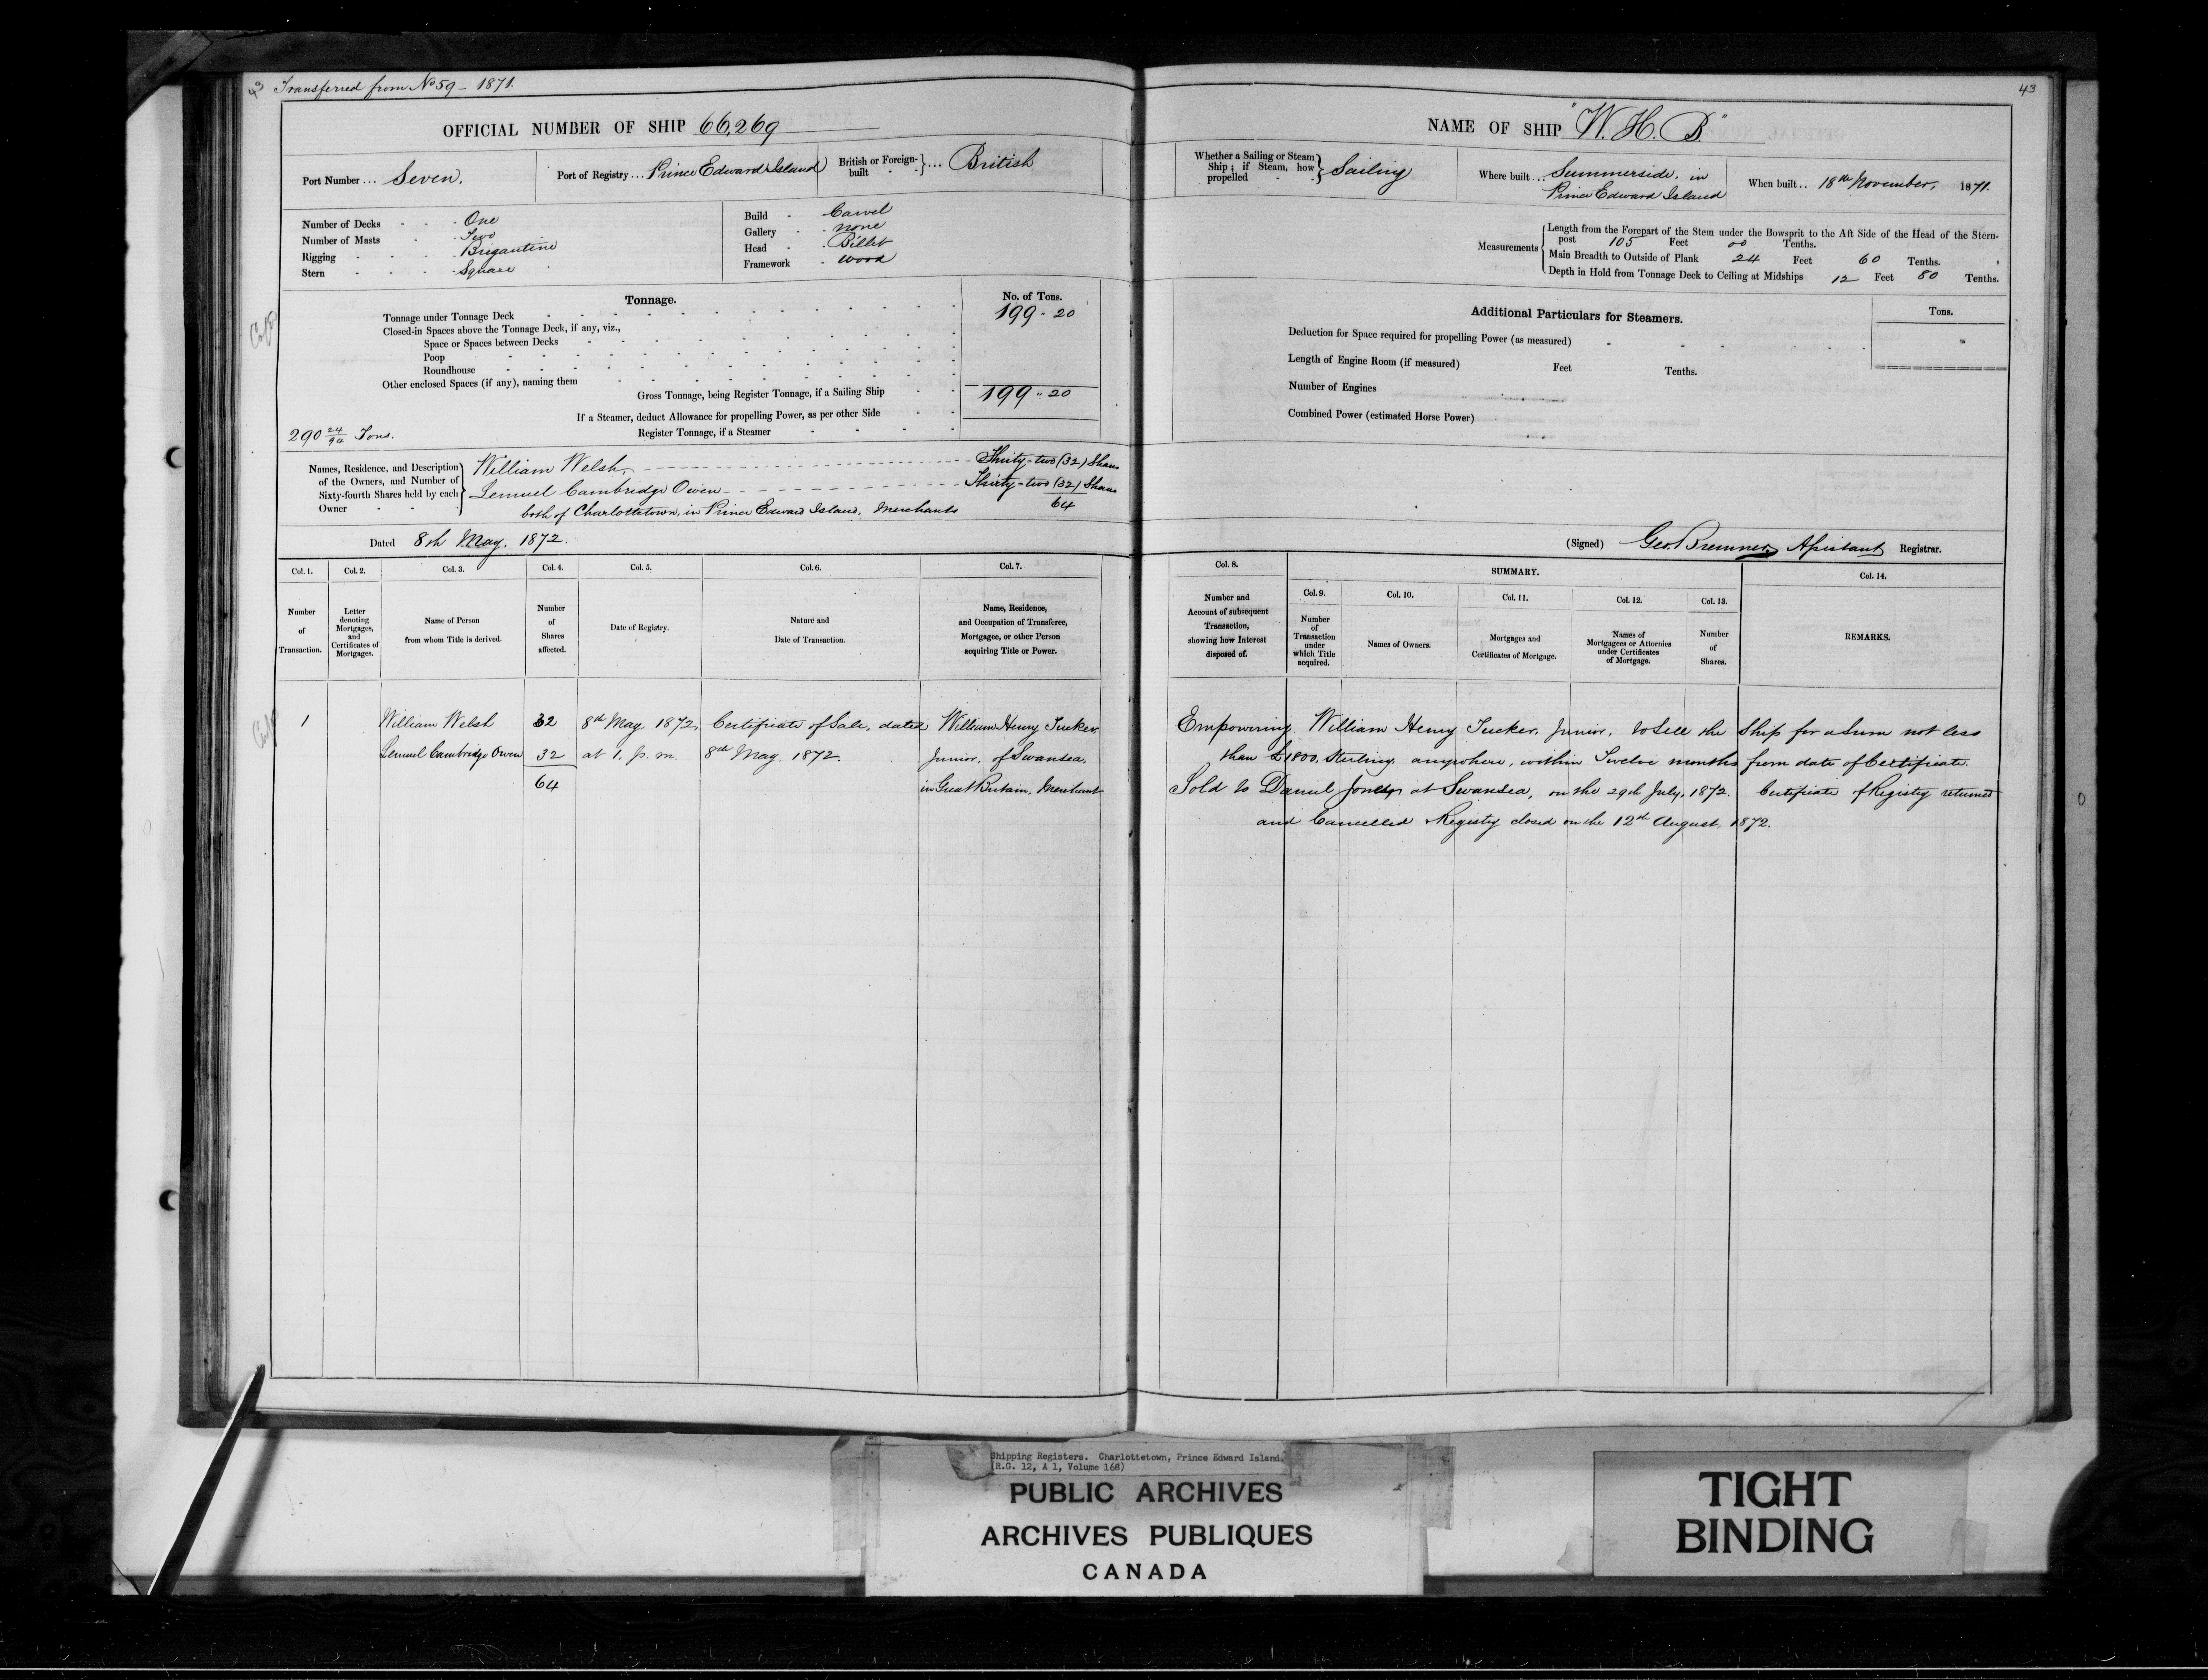 43 Transferred from No 59 - 1871.
OFFICIAL NUMBER OF SHIP 66,269
Port Number ... Seven.
Port of Registry ... Prince Edward Island
British or Foreign-built } ... British
Number of Decks - - - One
Number of Masts - - Two
Rigging - - - - Brigantine
Stern - - - - Square
Build - Carvel
Gallery - none
Head - Billet
Framework - Wood
Tonnage.
No. of Tons.
Tonnage under Tonnage Deck 199 - 20
Closed-in Spaces above the Tonnage Deck, if any, viz.,
Space or Spaces between Decks
Poop
Roundhouse
Other enclosed Spaces (if any), naming them
Gross Tonnage, being Register Tonnage, if a Sailing Ship 199 - 20
If a Steamer, deduct Allowance for propelling Power, as per other Side
290 24/94 Tons.
Register Tonnage, if a Steamer
Names, Residence, and Description of the Owners, and Number of Sixty-fourth Shares held by each Owner
William Welsh, Thirty-two (32) Shares
Lemuel Cambridge Owen Thirty-two (32) Shares
both of Charlottetown, in Prince Edward Island, Merchants 64
Dated 8th May, 1872.
Col. 1. Col. 2. Col. 3. Col. 4. Col. 5. Col. 6. Col. 7.
Number of Transaction.
Letter denoting Mortgages, and Certificates of Mortgages.
Name of Person from whom Title is derived.
Number of Shares affected.
Date of Registry.
Nature and Date of Transaction.
Name, Residence, and Occupation of Transferee, Mortgagee, or other Person acquiring Title or Power.
1 William Welsh 32 8th May 1872, Certificate of Sale, dated William Henry Tucker
Lemuel Cambridge Owen 32 at 1. p. m. 8th May 1872. Junior, of Swansea,
64 in Great Britain, Merchant
43
NAME OF SHIP "W. H. B."
Whether a Sailing or Steam Ship; if Steam, how propelled } Sailing
Where built ... Summerside, in Prince Edward Island
When built .. 18th November, 1871.
Measurements
Length from the Forepart of the Stem under the Bowsprit to the Aft Side of the Head of the Stern-
post 105 Feet 00 Tenths.
Main Breadth to Outside of Plank 24 Feet 60 Tenths.
Depth in Hold from Tonnage Deck to Ceiling at Midships 12 Feet 80 Tenths.
Additional Particulars for Steamers.
Tons.
Deduction for Space required for propelling Power (as measured)
Length of Engine Room (if measured) Feet Tenths.
Number of Engines
Combined Power (estimated Horse Power)
(Signed) Geo. Bremner Assistant Registrar.
Col. 8. SUMMARY. Col. 14.
Col. 9. Col. 10. Col. 11. Col. 12. Col. 13.
Number and Account of subsequent Transaction, showing how Interest disposed of.
Number of Transaction under which Title acquired.
Names of Owners.
Mortgages and Certificates of Mortgage.
Names of Mortgagees or Attornies under Certificates of Mortgage.
Number of Shares.
REMARKS.
Empowering William Henry Tucker, Junior, to Sell the Ship for a Sum not less
than £1800, Sterling, anywhere, within Twelve months from date of Certificate.
Sold to Daniel Jones at Swansea, on the 29th July, 1872. Certificate of Registry returned
and Cancelled Registry closed on the 12th August, 1872.
Shipping Registers. Charlottetown, Prince Edward Island.
(R.G. 12, A 1, Volume 168)
PUBLIC ARCHIVES
ARCHIVES PUBLIQUES
CANADA
TIGHT
BINDING